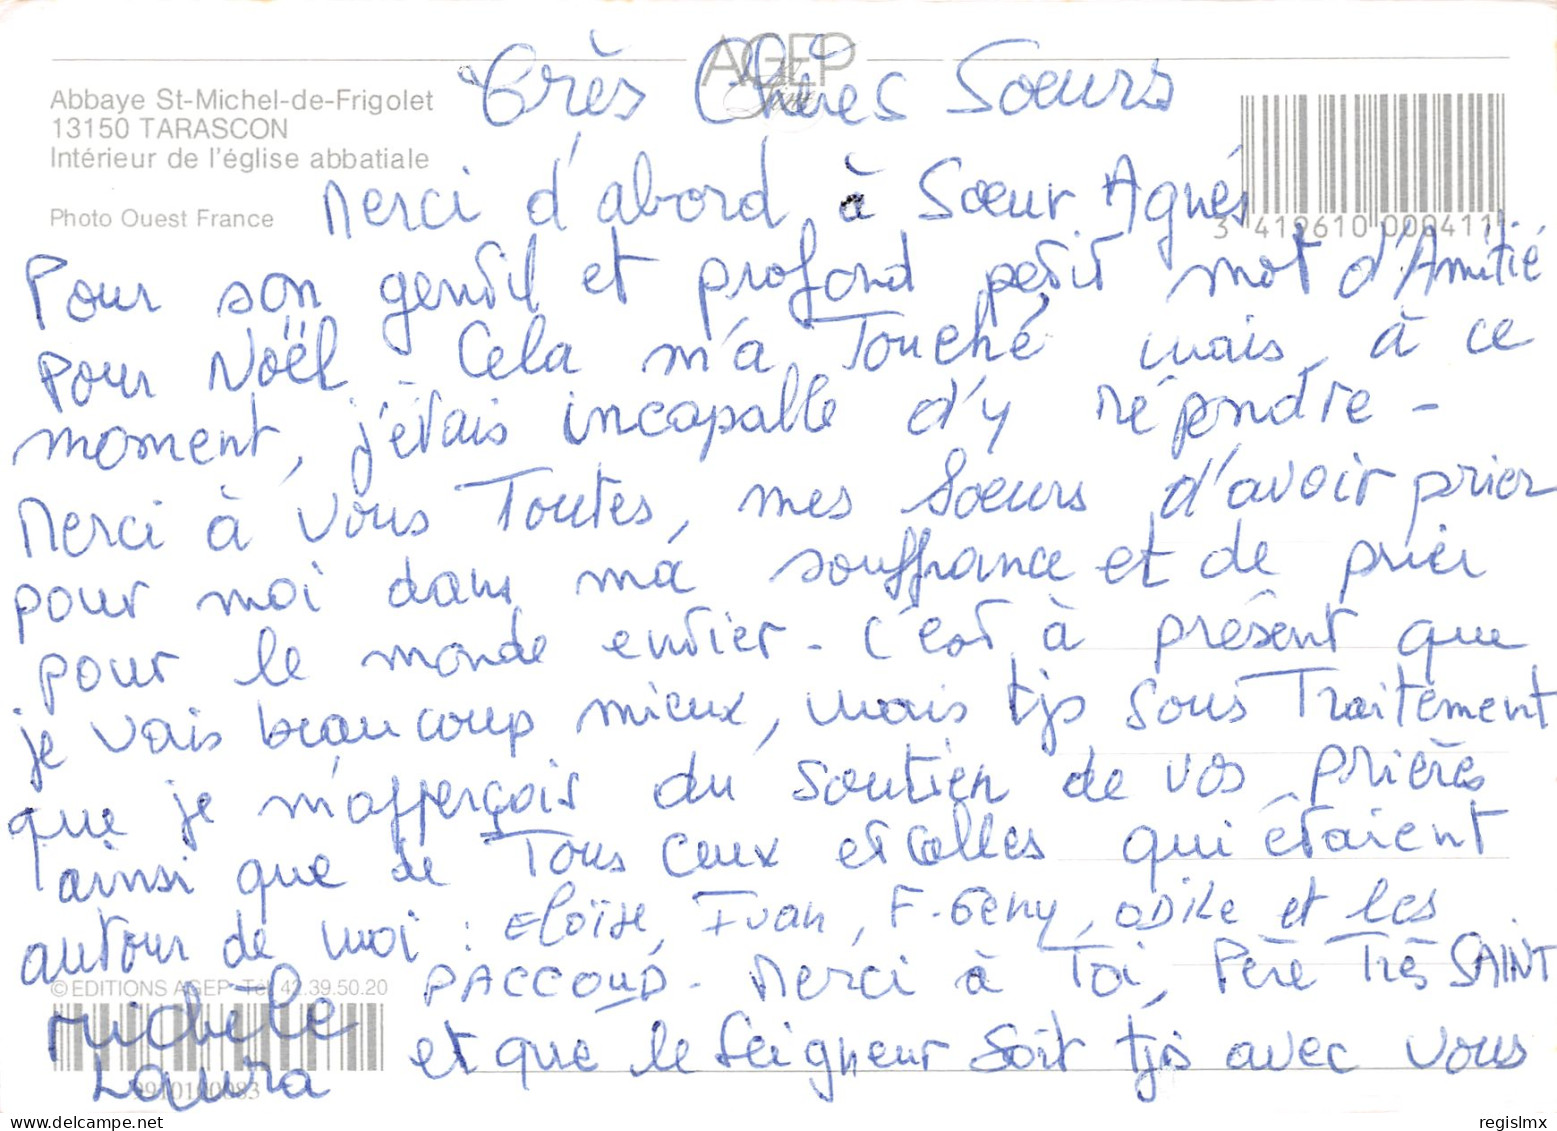 AGEP
Abbaye St-Michel-de-Frigolet
13150 TARASCON
Intérieur de l'église abbatiale
Photo Ouest France
Très Chères Soeurs
Merci d'abord à Soeur Agnés
3 419610 000411
Pour son gentil et profond petit mot d'Amitié
pour Noël. Cela m'a Touché mais à ce
moment, j'étais incapable d'y répondre -
Merci à vous Toutes, mes Soeurs d'avoir prier
pour moi dans ma souffrance et de prier
pour le monde entier - C'est à présent que
je vais beaucoup mieux, mais tjs sous Traitement
que je m'afferçois du soutien de vos prières
ainsi que de Tous ceux et celles qui étaient
autour de moi : Eloïse, Ivan, F-Geny, ODILE et les
PACCOUD - Merci à Toi, Père Très SAINT
et que le Seigneur soit tjs avec vous
Michèle
Laura
©EDITIONS AGEP Tél 42.39.50.20
delcampe.net
regislmx